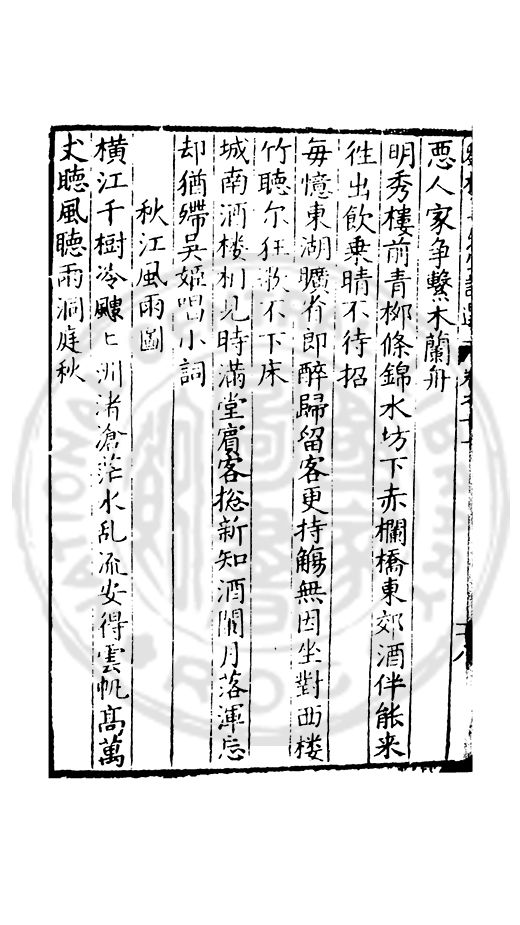 惡人家争繫木蘭舟
明秀樓前青桺條錦水坊下赤欄橋東郊酒伴能来
徃出飲乗晴不待招
每憶東湖曠者即醉歸留客更持觴無因坐對西楼
竹聽尔狂歌不下床
城南酒楼初見時滿堂賔客総新知酒闌月落渾忘
却猶殢吳姬唱小詞
秋江風雨圖
横江千樹冷颼〻洲渚滄茫水乱流安得雲帆髙萬
丈聽風聽雨洞庭秋